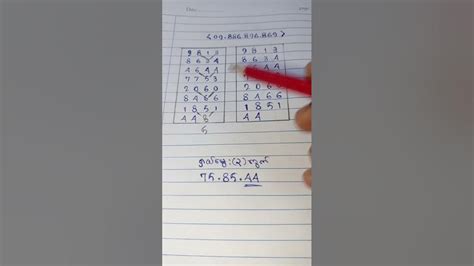 09.886.896.869
9 8 1 3
8 6 3 4
4 6 4 4
7 7 5 3
2 0 6 0
8 4 6 6
1 8 5 1
4 4 5
5
9 8 1 3
8 6 3 4
4 4
2 0 6
8 4 6 6
1 8 5 1
4 4
(၃)ကွက်
75.85.44